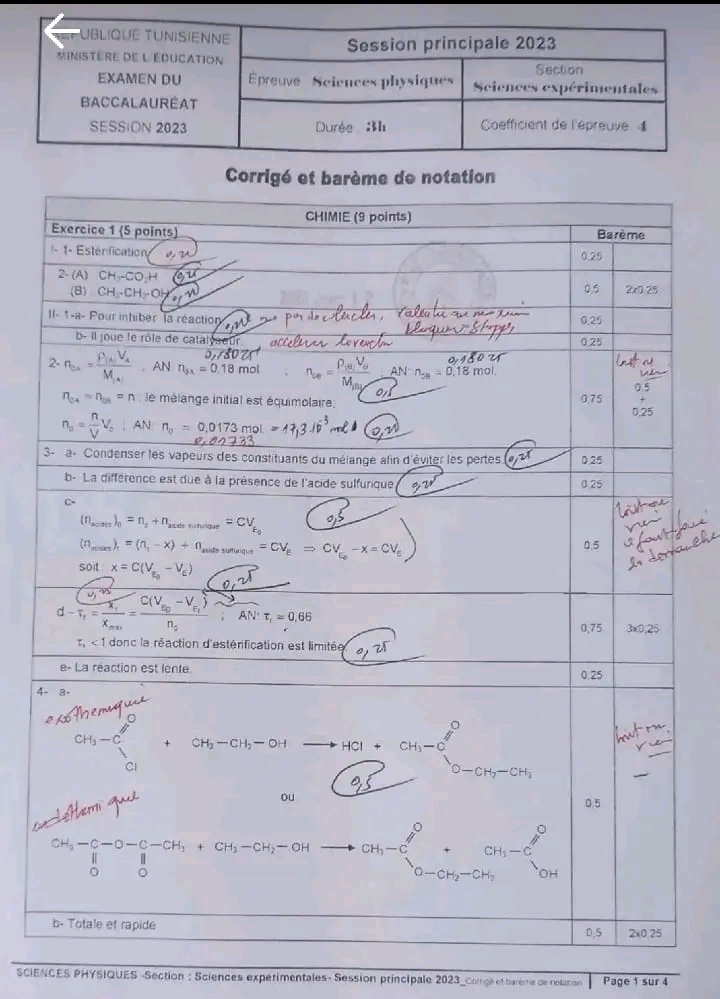 RÉPUBLIQUE TUNISIENNE
MINISTÈRE DE L'ÉDUCATION
EXAMEN DU
BACCALAURÉAT
SESSION 2023
Session principale 2023
Épreuve Sciences physiques
Section
Sciences expérimentales
Durée 3h
Coefficient de l'épreuve 4
Corrigé et barème de notation
CHIMIE (9 points)
Exercice 1 (5 points)
Barème
I- 1- Estérification 0,25
0,25
2- (A) CH₃-CO₂H 0,25
(B) CH₃-CH₂-OH 0,25
0,5 2x0,25
II- 1-a- Pour inhiber la réaction 0,25
bloquer - Stopper
0,25
b- Il joue le rôle de catalyseur. accelerer
0,25
0,18025 0,18025
2- n₀A = ρ(A)VA / M(A) , AN n₀A = 0,18 mol , n₀B = ρ(B)VB / M(B) , AN: n₀B = 0,18 mol.
n₀A = n₀B = n : le mélange initial est équimolaire. 0,5
n₀ = n/V V₀ ; AN n₀ = 0,0173 mol = 17,3.10⁻³ mol 0,25
0,01733
0,75
tout ou rien
0,5
+
0,25
3- a- Condenser les vapeurs des constituants du mélange afin d'éviter les pertes 0,25
0,25
b- La différence est due à la présence de l'acide sulfurique 0,25
0,25
c-
(n acides)₀ = n₀ + n acide sulfurique = CVE₀ 0,5
(n acides)t = (n₀ – x) + n acide sulfurique = CVE ⇒ CVE₀ – x = CVE
soit : x = C(VE₀ – VE)
0,5
tout ou rien
il faut faire la demarche
0,25 0,25
d – τf = xf / xmax = C(VE₀ – VEf) / n₀ ; AN: τf = 0,66
τf < 1 donc la réaction d'estérification est limitée 0,25
0,75 3x0,25
e- La réaction est lente.
0,25
4- a-
exothermique
CH₃–C(=O)–Cl + CH₃–CH₂–OH ⟶ HCl + CH₃–C(=O)–O–CH₂–CH₃
0,5
ou
CH₃–C(=O)–O–C(=O)–CH₃ + CH₃–CH₂–OH ⟶ CH₃–C(=O)–O–CH₂–CH₃ + CH₃–C(=O)–OH
0,5
tout ou rien
b- Totale et rapide
0,5 2x0,25
SCIENCES PHYSIQUES -Section : Sciences expérimentales- Session principale 2023_Corrigé et barème de notation Page 1 sur 4